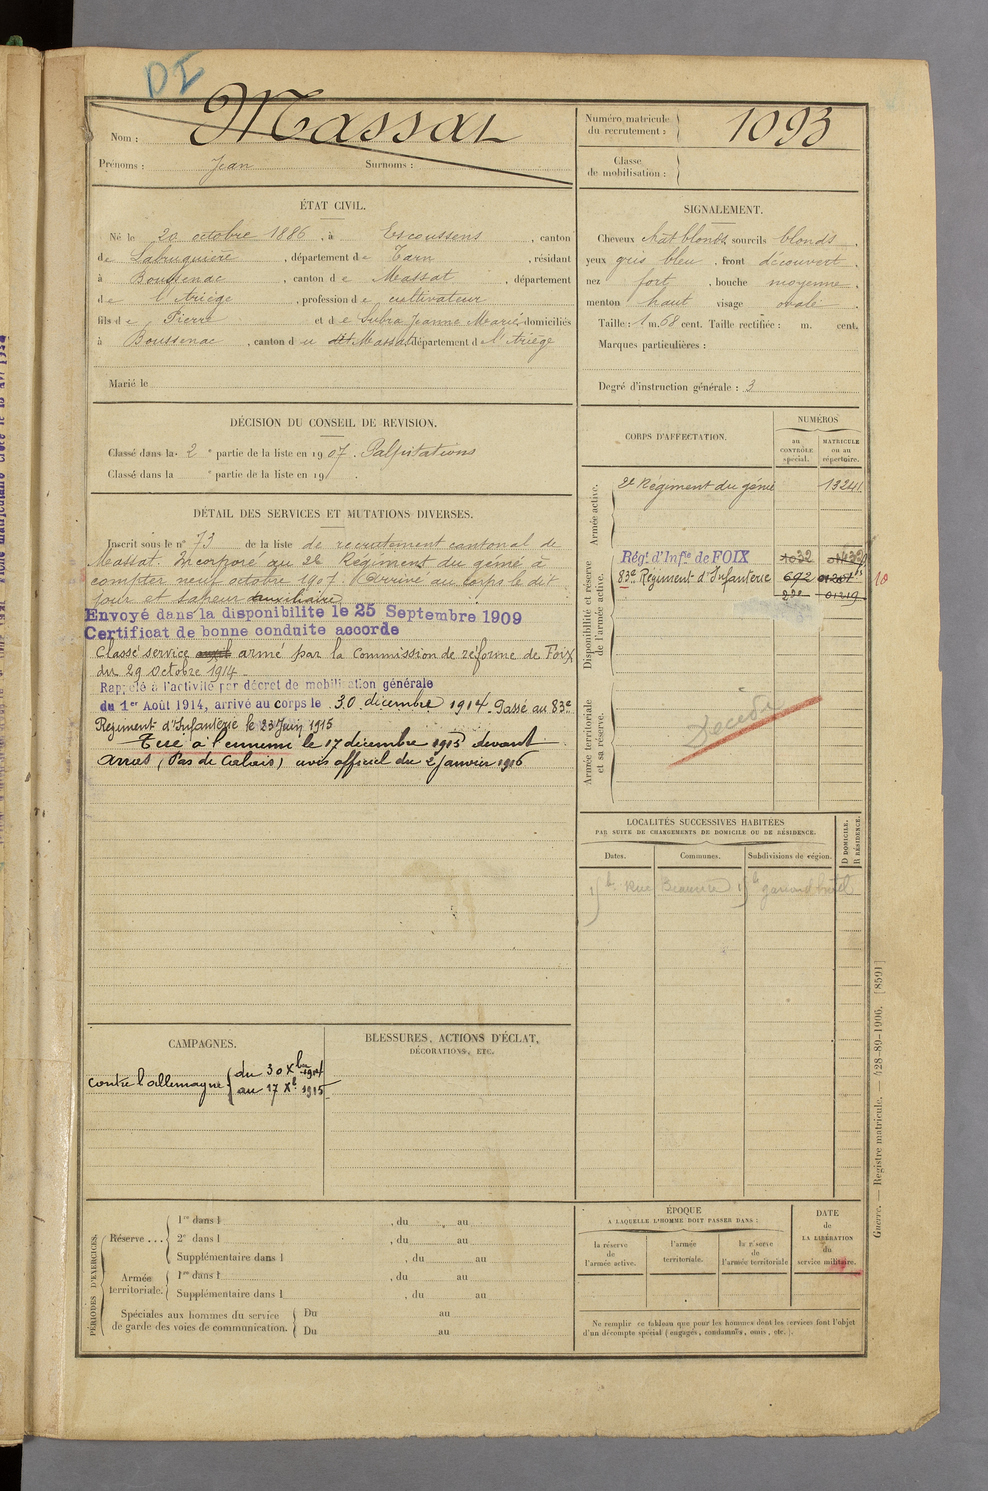 DI
Nom : Massat
Prénoms : Jean Surnoms :
Numéro matricule du recrutement : 1093
Classe de mobilisation :
ÉTAT CIVIL.
Né le 20 octobre 1886, à Escoussens, canton
de Labruguière, département de Tarn, résidant
à Boussenac, canton de Massat, département
de l'Ariège, profession de cultivateur
fils de Pierre et de Subra Jeanne Marie domiciliés
à Boussenac, canton du dit Massat département de l'Ariège
Marié le
SIGNALEMENT.
Cheveux chat blonds sourcils blonds
yeux gris bleu, front découvert
nez fort, bouche moyenne
menton haut visage ovale
Taille : 1 m. 68 cent. Taille rectifiée : m. cent.
Marques particulières :
Degré d'instruction générale : 3
DÉCISION DU CONSEIL DE REVISION.
Classé dans la 2e partie de la liste en 1907. Palpitations
Classé dans la e partie de la liste en 19 .
DÉTAIL DES SERVICES ET MUTATIONS DIVERSES.
Inscrit sous le n° 73 de la liste de recrutement cantonal de
Massat. Incorporé au 2e Régiment du génie à
compter neuf octobre 1907. Arrivé au corps le dit
jour et sapeur auxiliaire
Envoyé dans la disponibilite le 25 Septembre 1909
Certificat de bonne conduite accorde
Classé service auxil armé par la Commission de réforme de Foix
du 29 Octobre 1914
Rappelé à l'activité par décret de mobilisation générale
du 1er Août 1914, arrivé au corps le 30 décembre 1914. Passé au 83e
Régiment d'Infanterie le 23 Juin 1915
Tué à l'ennemi le 17 décembre 1915 devant
Arras (Pas de Calais) avis officiel du 2 Janvier 1916
CORPS D'AFFECTATION.
NUMÉROS
au CONTRÔLE spécial.
MATRICULE ou au répertoire.
Armée active.
2e Régiment du génie 13241
Disponibilité et réserve de l'armée active.
Régt d'Infie de FOIX 1032
83e Régiment d'Infanterie 692
10
01219
Armée territoriale et sa réserve.
Décédé
LOCALITÉS SUCCESSIVES HABITÉES
PAR SUITE DE CHANGEMENTS DE DOMICILE OU DE RÉSIDENCE.
Dates. Communes. Subdivisions de région. D DOMICILE. R RÉSIDENCE.
Rue
CAMPAGNES.
Contre l'allemagne du 30 Xbre 1914
au 17 Xb 1915
BLESSURES, ACTIONS D'ÉCLAT,
DÉCORATIONS, ETC.
PÉRIODES D'EXERCICES.
Réserve ... 1re dans l , du , au
2e dans l , du au
Supplémentaire dans l , du au
Armée territoriale. 1re dans l , du au
Supplémentaire dans l , du au
Spéciales aux hommes du service de garde des voies de communication. Du au
Du au
ÉPOQUE
A LAQUELLE L'HOMME DOIT PASSER DANS :
la réserve de l'armée active.
l'armée territoriale.
la réserve de l'armée territoriale
DATE de LA LIBÉRATION du service militaire.
Ne remplir ce tableau que pour les hommes dont les services font l'objet
d'un décompte spécial (engagés, condamnés, omis, etc.).
Guerre. — Registre matricule. — 428-89-1906. [8591]